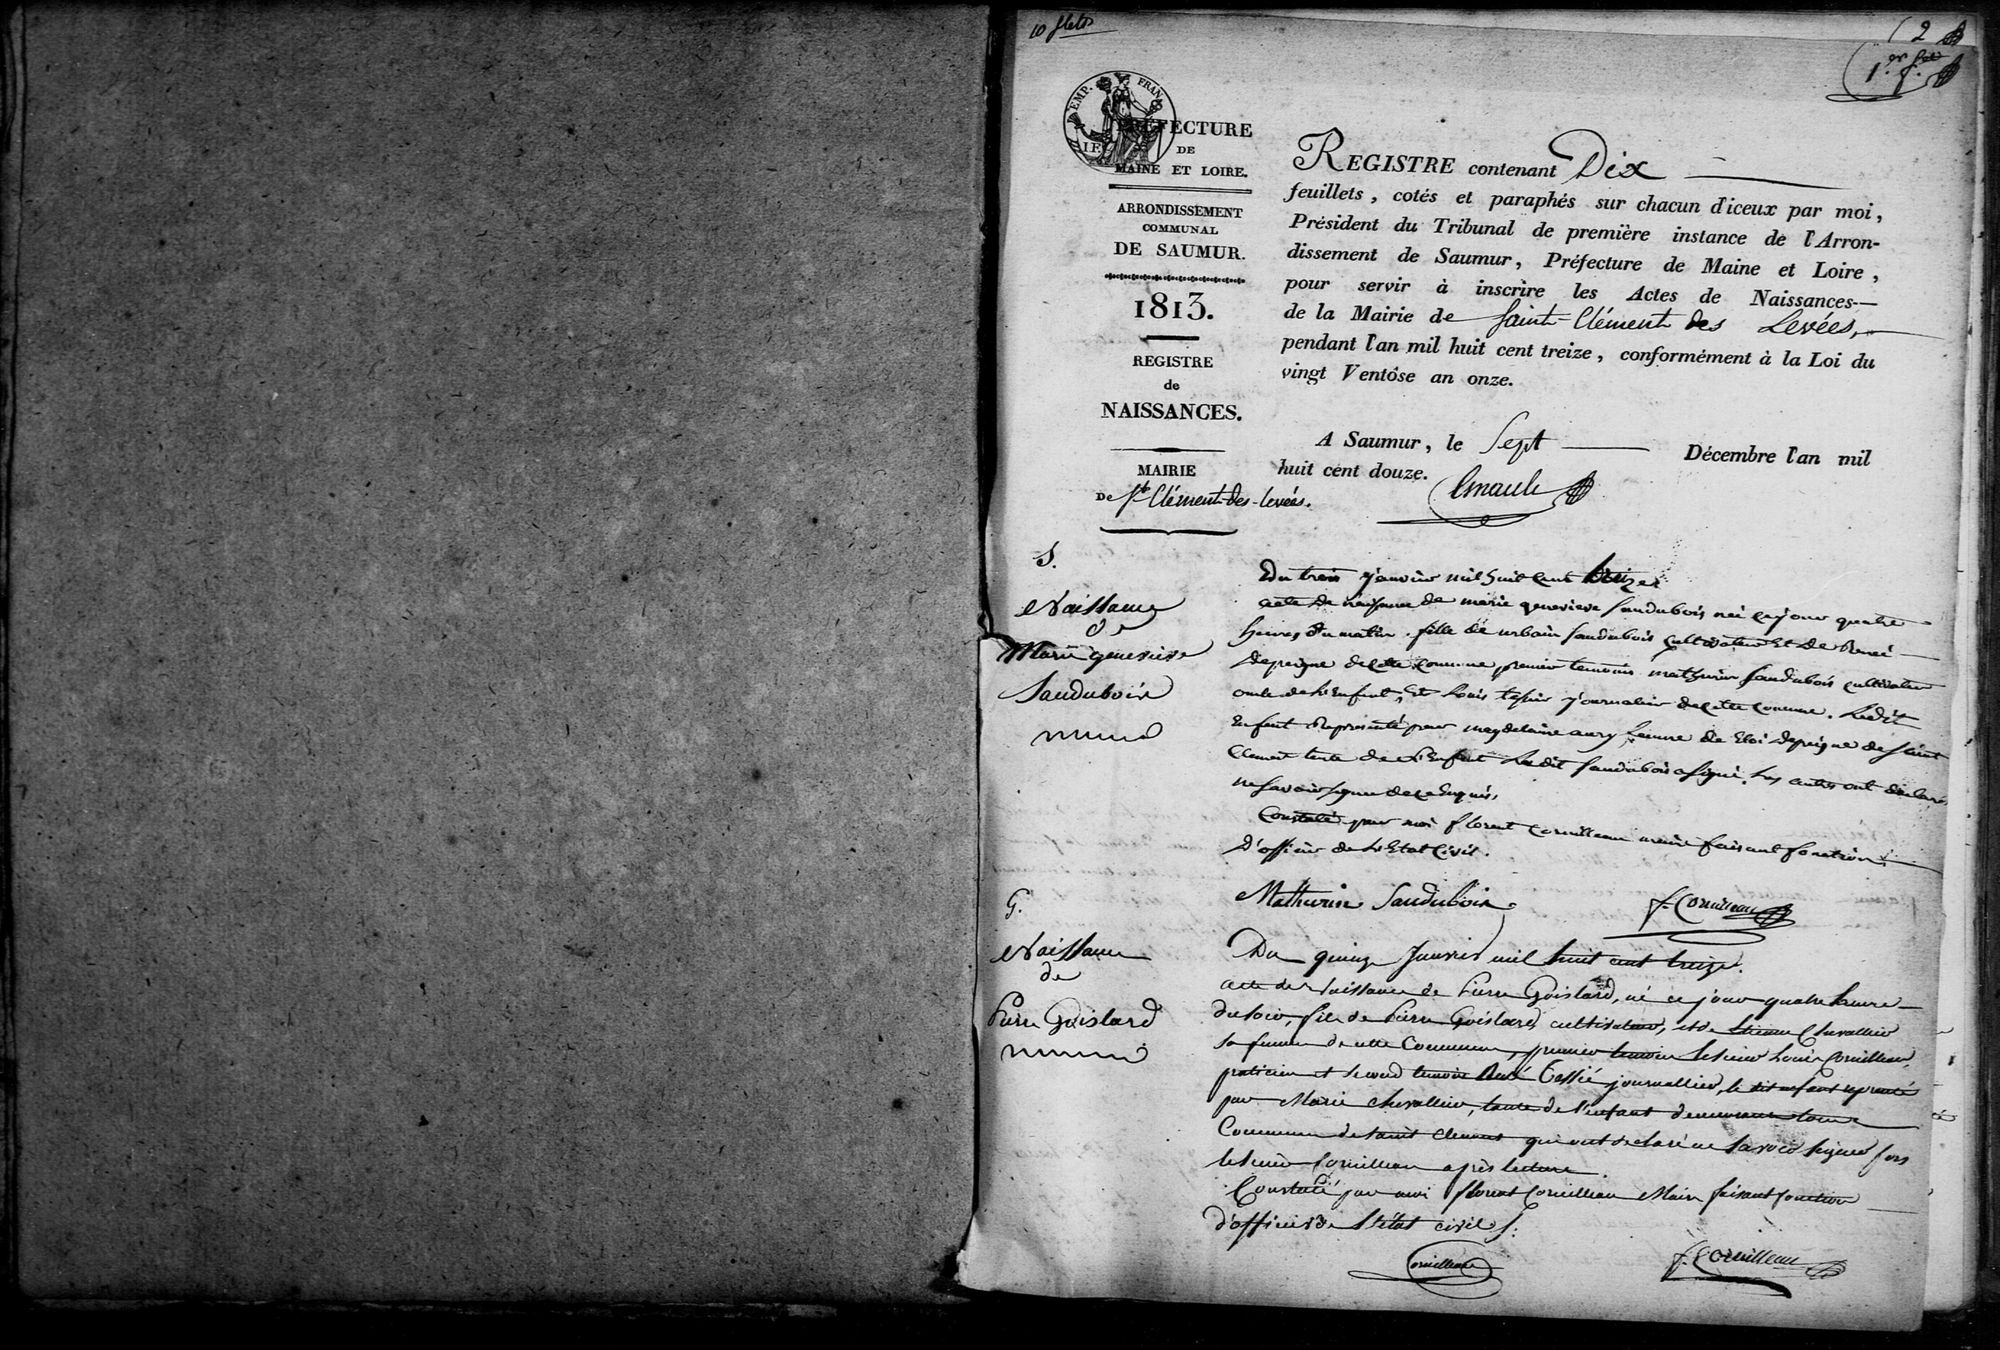 10 f.lets
2
1.er f.et
EMP. FRAN.
PRÉFECTURE
DE
MAINE ET LOIRE.
ARRONDISSEMENT
COMMUNAL
DE SAUMUR.
1813.
REGISTRE
de
NAISSANCES.
MAIRIE
DE St Clément-des-levées.
REGISTRE contenant Dix
feuillets, cotés et paraphés sur chacun d'iceux par moi,
Président du Tribunal de première instance de l'Arron-
dissement de Saumur, Préfecture de Maine et Loire,
pour servir à inscrire les Actes de Naissances
de la Mairie de Saint-Clément des Levées,
pendant l'an mil huit cent treize, conformément à la Loi du
vingt Ventôse an onze.
A Saumur, le Sept Décembre l'an mil
huit cent douze.
S.
Naissance
de
Marie genevieve
Saudubois
Du trois janvier mil huit cent treize
acte de naissance de marie genevieve Saudubois née ce jour quatre
heures du matin, fille de urbain Saudubois cultivateur Et de Renée
Depeigne de cette commune premier temoins mathurin Saudubois cultivateur
oncle de L'Enfant, Et Louis tessier journalier de cette commune. Ledit
Enfant Representé par magdelaine aury femme de Eloi Depeigne de Saint
Clement tante de L'Enfant Ledit Saudubois a signé, Les autres ont déclaré
ne savoir signer de ce Enquis,
Constaté par moi florent Cornilleau maire faisant fonction
d'officier de L'Etat Civil.
Mathurin Saudubois
f. Cornilleau
G.
Naissance
de
Pierre Goislard
Du quinze Janvier mil huit cent treize.
acte de Naissance de Pierre Goislard, né ce jour quatre heure
du soir, fils de Pierre Goislard cultivateur, et de Etienne Chevallier
sa femme de cette Commune, premier temoin le sieur Louis Cornilleau,
praticien et second temoin René Tessié journallier, le dit enfant represanté
par Marie chevallier, tante de l'enfant demeurant
Commune de saint clement qui ont déclaré ne savoir signer fors
le sieur Cornilleau après lecture.
Constaté par moi florent Cornilleau Maire faisant fonction
d'officier de L'état civil.
Cornilleau
f. Cornilleau